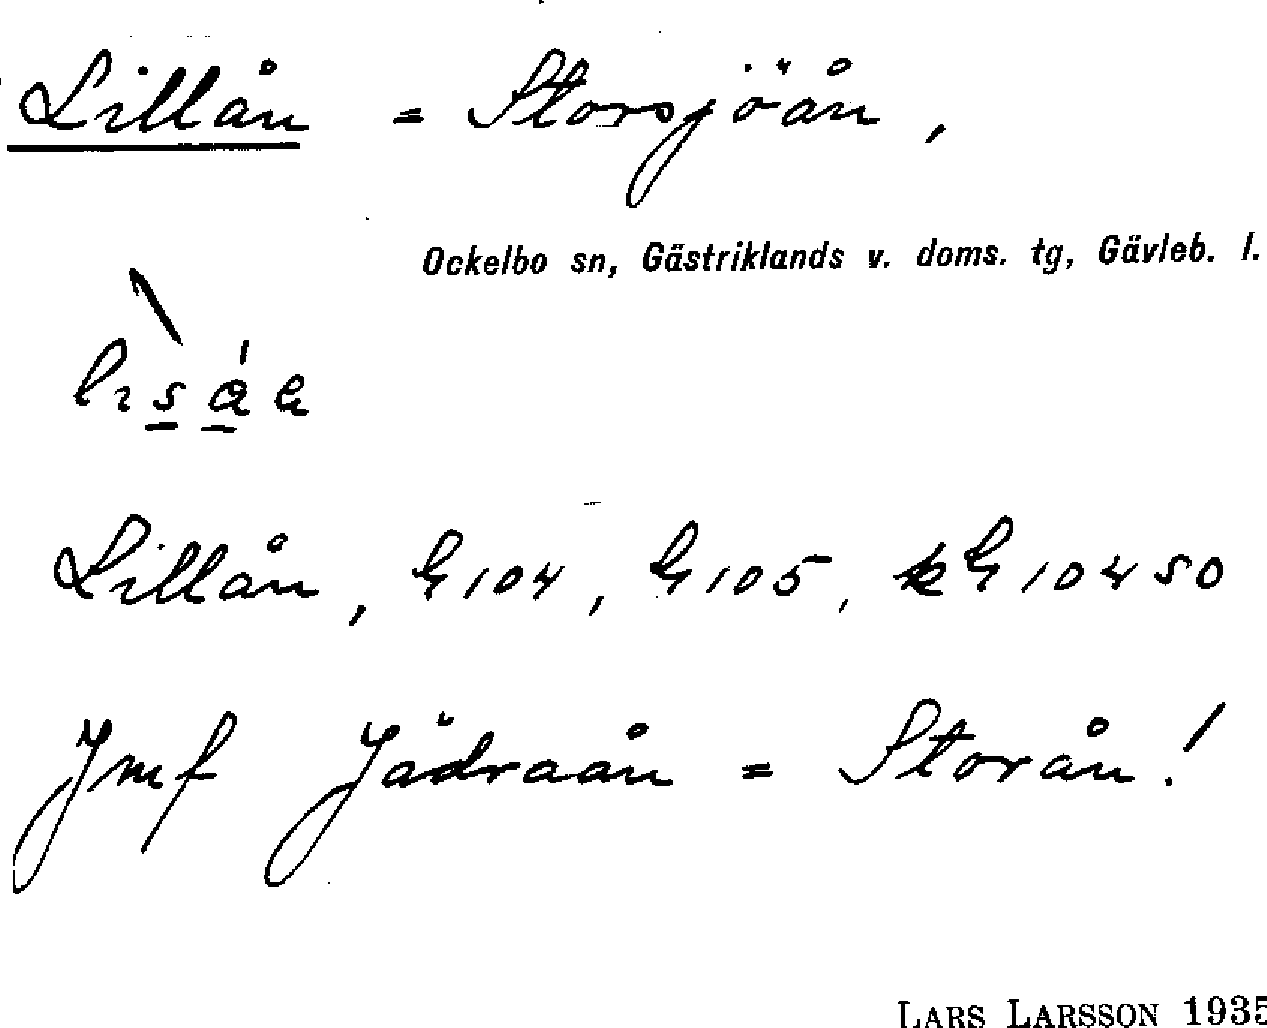 Lillån = Storsjöån,
Ockelbo sn, Gästriklands v. doms. tg, Gävleb. l.
Lillån, G104, G105, kG10450
Jmf Jädraån = Storån!
LARS LARSSON 1935